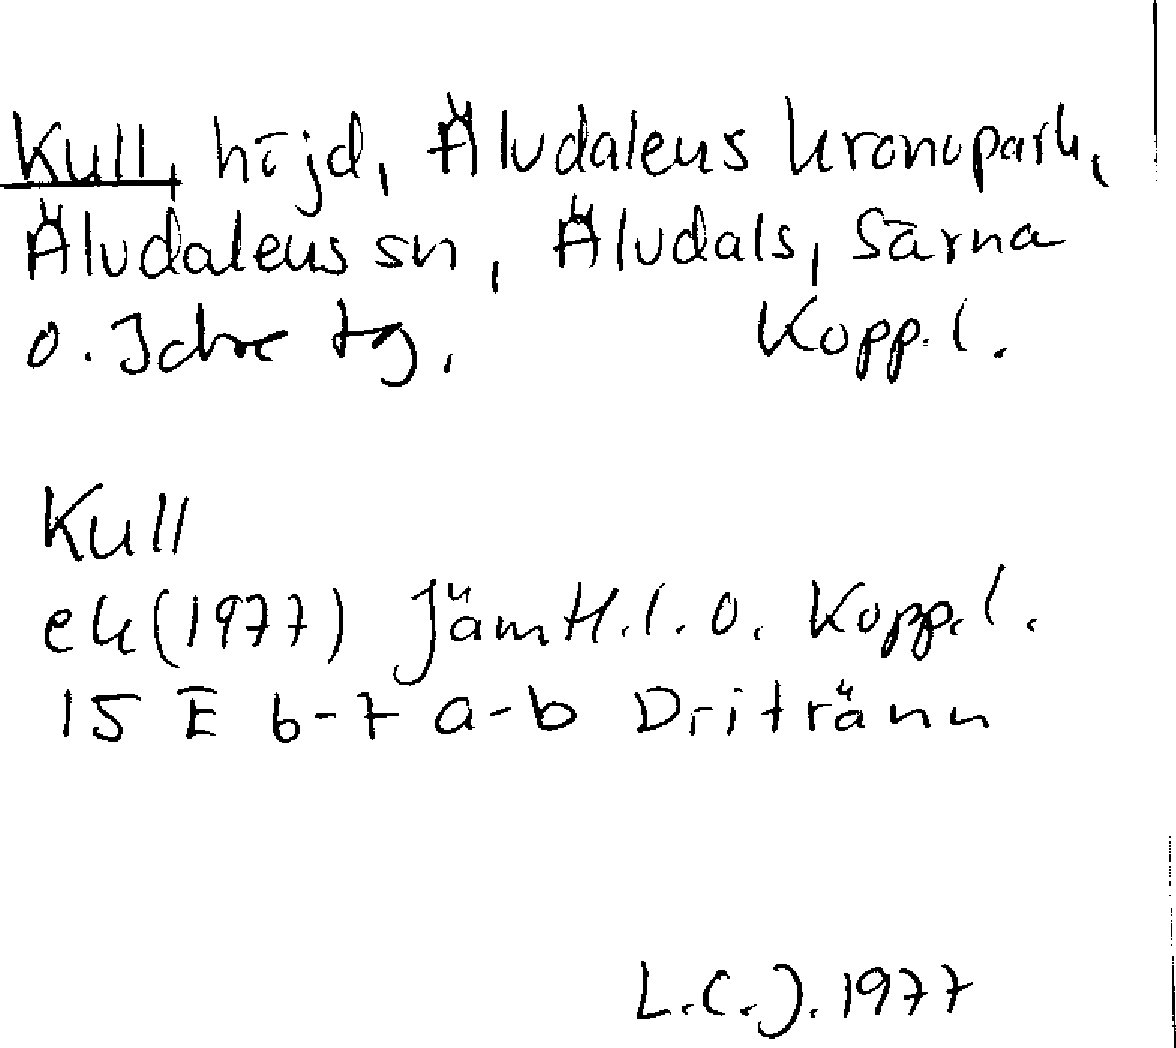 Kull, höjd, Älvdalens kronopark,
Älvdalens sn, Älvdals, Särna
o. Idre tg. Kopp. l.
Kull
ek (1977) Jämtl. l. o. Kopp. l.
15 E 6-7 a-b Dritränn
L.C.J. 1977